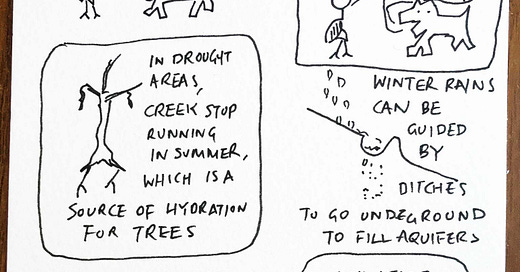 IN DROUGHT
AREAS,
CREEK STOP
RUNNING
IN SUMMER,
WHICH IS A
SOURCE OF HYDRATION
FOR TREES
WINTER RAINS
CAN BE
GUIDED
BY
DITCHES
TO GO UNDEGROUND
TO FILL AQUIFERS